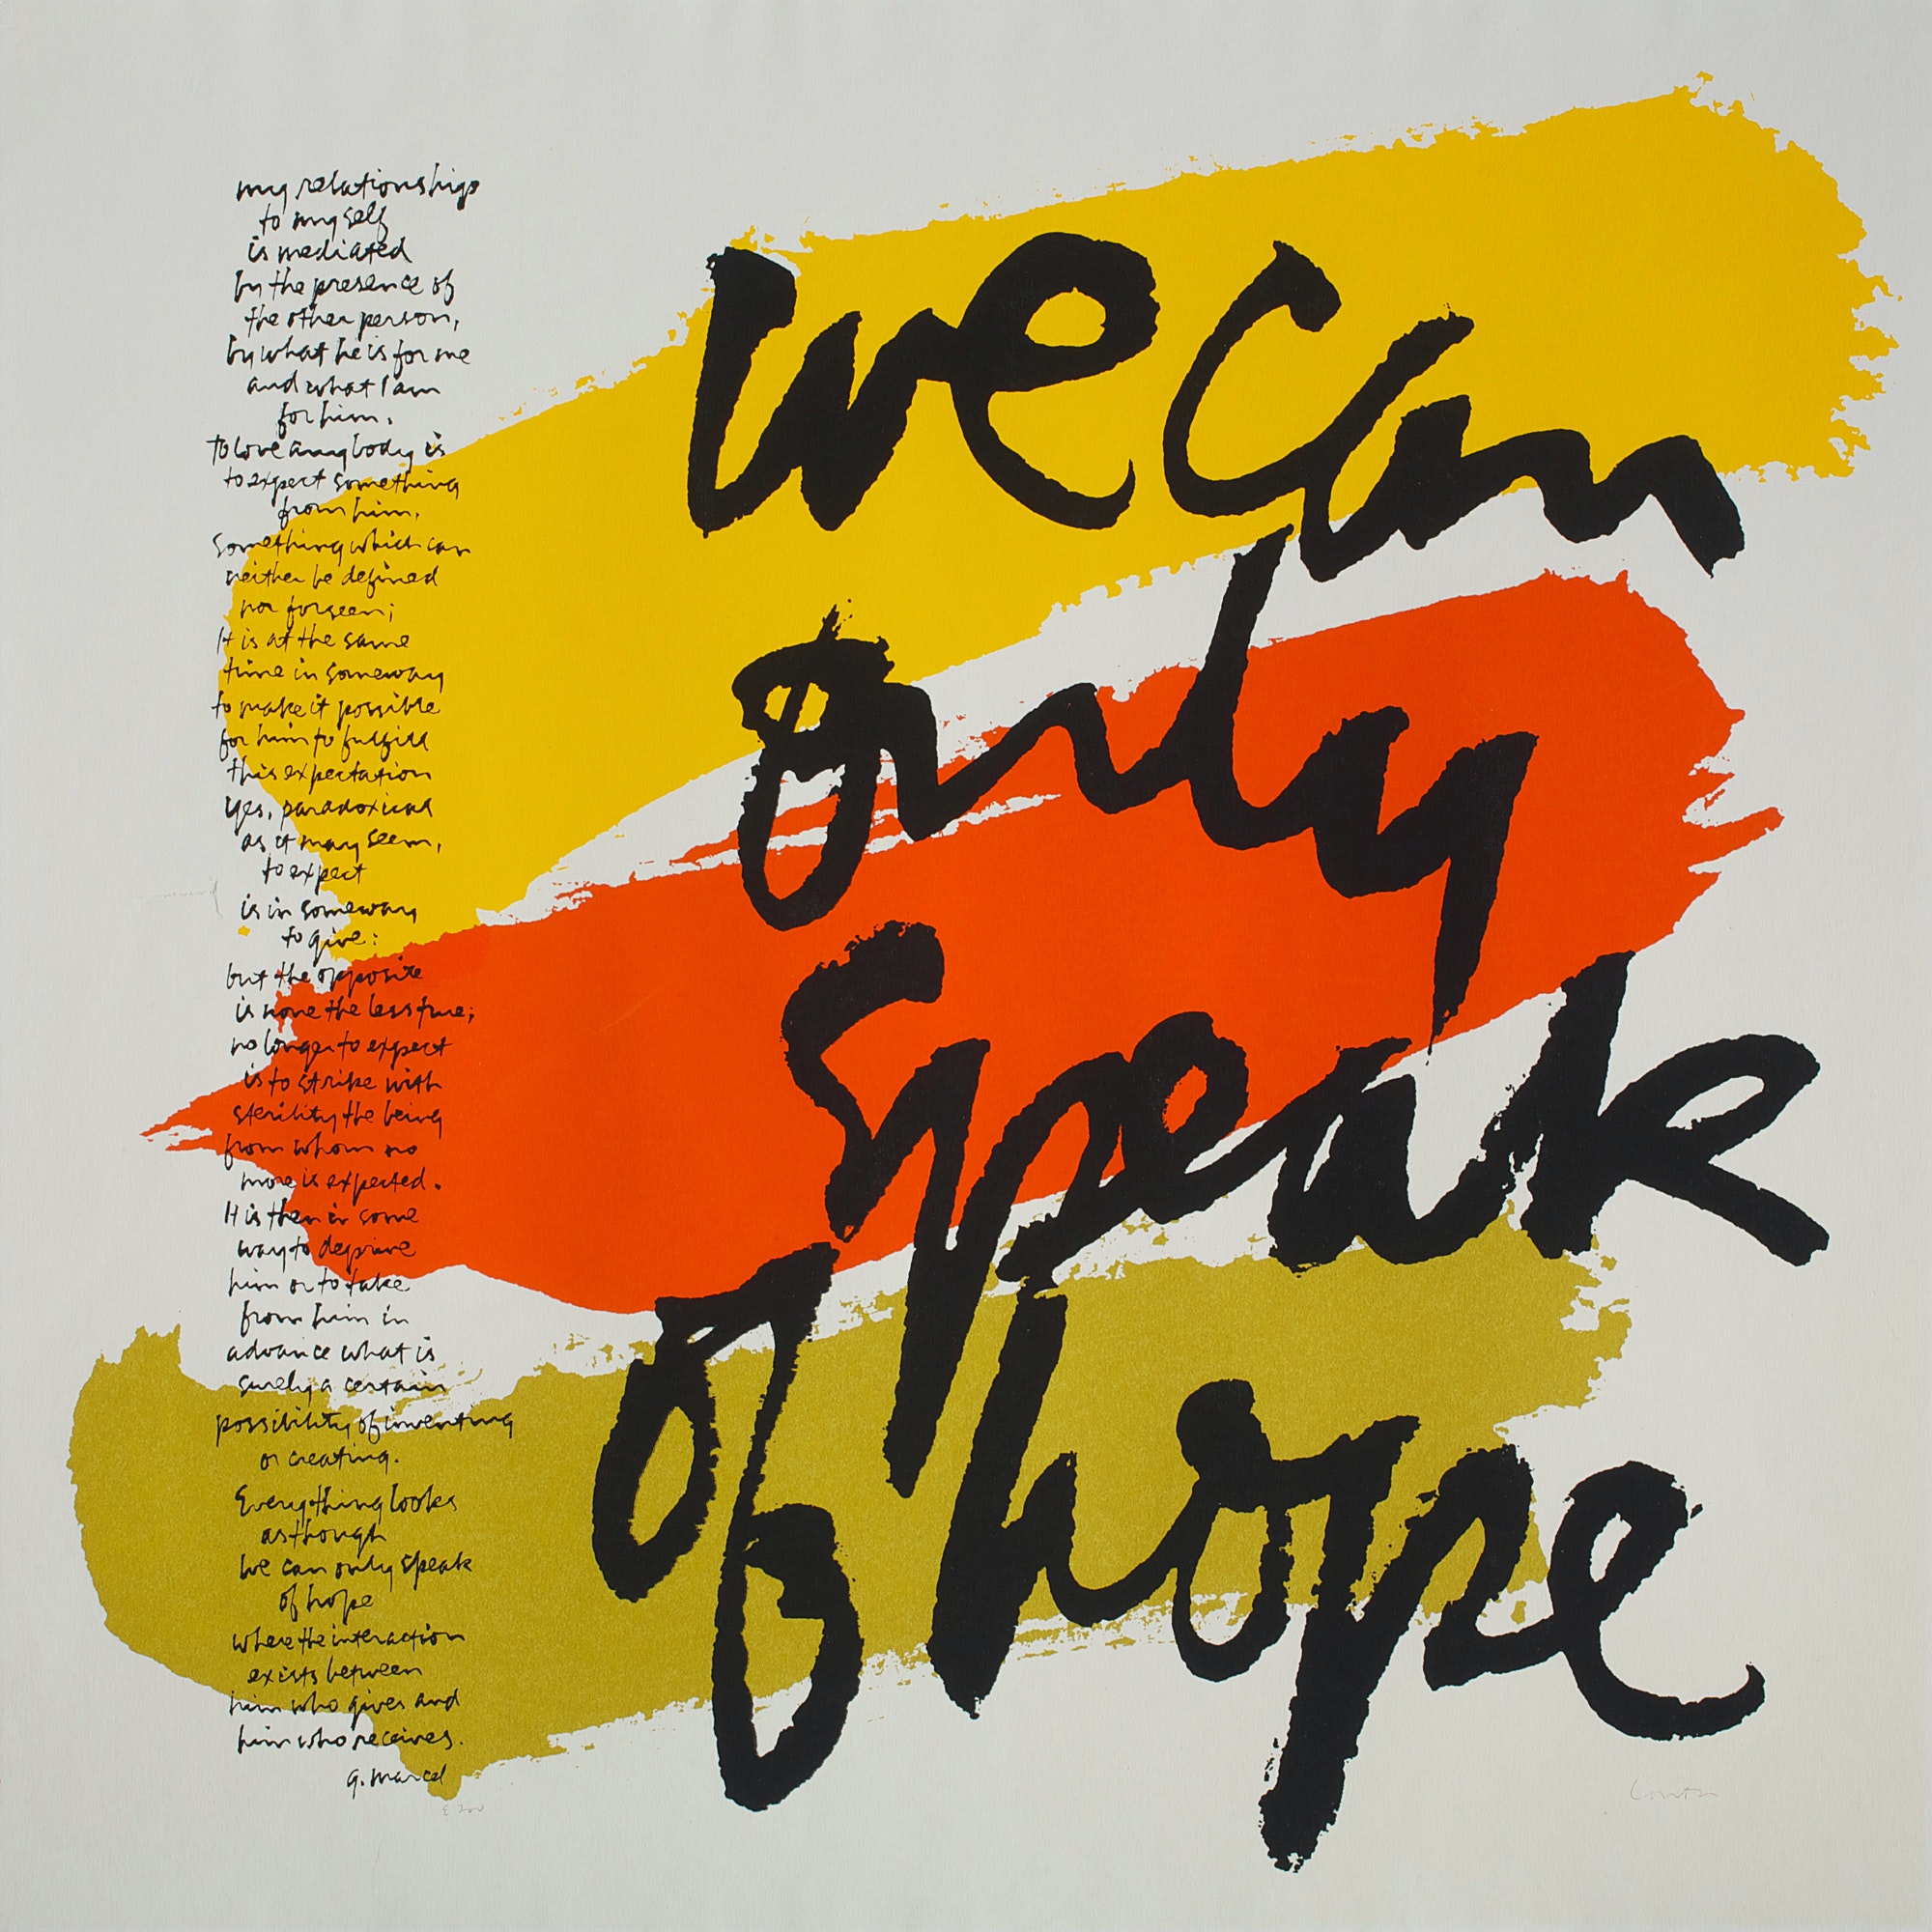 my relationships
to myself
is mediated
by the presence of
the other person,
by what he is for me
and what I am
for him.
To love anybody is
to expect something
from him.
Something which can
neither be defined
nor forseen;
It is at the same
time in someway
to make it possible
for him to fulfill
this expectation
yes, paradoxical
as it may seem,
to expect
is in someway
to give:
but the opposite
is none the less true;
no longer to expect
is to strike with
sterility the being
from whom no
more is expected.
It is then in some
way to deprive
him or to take
from him in
advance what is
surely a certain
possibility of inventing
or creating.
Everything looks
as though
we can only speak
of hope
where the interaction
exists between
him who gives and
him who receives.
g. marcel
we can
only
speak
of hope